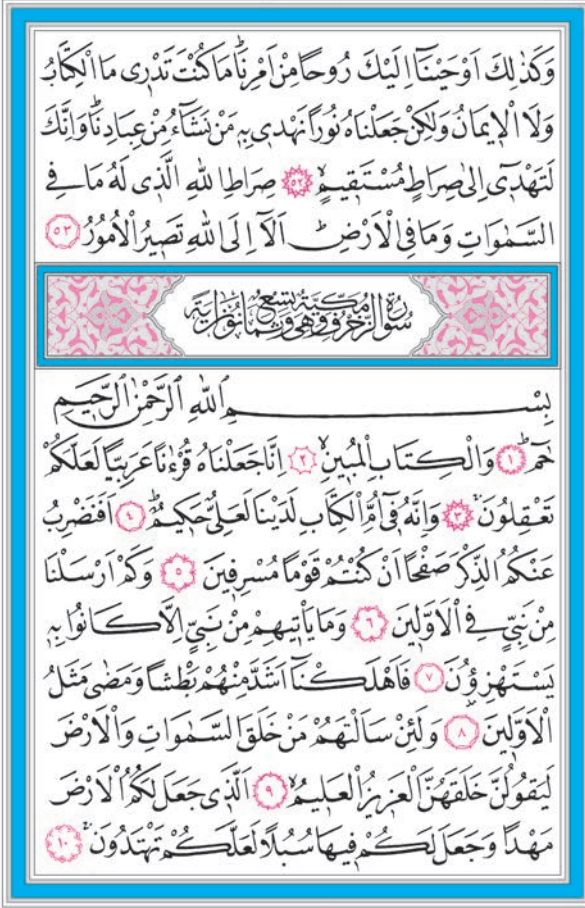 وَكَذٰلِكَ اَوْحَيْنَٓا اِلَيْكَ رُوحًا مِنْ اَمْرِنَاۜ مَا كُنْتَ تَدْر۪ي مَا الْكِتَابُ
وَلَا الْا۪يمَانُ وَلٰكِنْ جَعَلْنَاهُ نُورًا نَهْد۪ي بِه۪ مَنْ نَشَٓاءُ مِنْ عِبَادِنَاۜ وَاِنَّكَ
لَتَهْد۪ٓي اِلٰى صِرَاطٍ مُسْتَق۪يمٍۙ ﴿٥٢﴾ صِرَاطِ اللّٰهِ الَّذ۪ي لَهُ مَا فِي
السَّمٰوَاتِ وَمَا فِي الْاَرْضِۜ اَلَٓا اِلَى اللّٰهِ تَص۪يرُ الْاُمُورُ ﴿٥٣﴾
سُورَةُ الزُّخْرُفِ مَكِّيَّةٌ وَهِيَ تِسْعٌ وَثَمَانُونَ اٰيَةً
بِسْمِ اللّٰهِ الرَّحْمٰنِ الرَّح۪يمِ
حٰمٓۜ ﴿١﴾ وَالْكِتَابِ الْمُب۪ينِۙ ﴿٢﴾ اِنَّا جَعَلْنَاهُ قُرْءٰنًا عَرَبِيًّا لَعَلَّكُمْ
تَعْقِلُونَۚ ﴿٣﴾ وَاِنَّهُ ف۪ٓي اُمِّ الْكِتَابِ لَدَيْنَا لَعَلِيٌّ حَك۪يمٌۜ ﴿٤﴾ اَفَنَضْرِبُ
عَنْكُمُ الذِّكْرَ صَفْحًا اَنْ كُنْتُمْ قَوْمًا مُسْرِف۪ينَ ﴿٥﴾ وَكَمْ اَرْسَلْنَا
مِنْ نَبِيٍّ فِي الْاَوَّل۪ينَ ﴿٦﴾ وَمَا يَأْت۪يهِمْ مِنْ نَبِيٍّ اِلَّا كَانُوا بِه۪
يَسْتَهْزِؤُ۫نَ ﴿٧﴾ فَاَهْلَكْنَٓا اَشَدَّ مِنْهُمْ بَطْشًا وَمَضٰى مَثَلُ
الْاَوَّل۪ينَ ﴿٨﴾ وَلَئِنْ سَاَلْتَهُمْ مَنْ خَلَقَ السَّمٰوَاتِ وَالْاَرْضَ
لَيَقُولُنَّ خَلَقَهُنَّ الْعَز۪يزُ الْعَل۪يمُۙ ﴿٩﴾ اَلَّذ۪ي جَعَلَ لَكُمُ الْاَرْضَ
مَهْدًا وَجَعَلَ لَكُمْ ف۪يهَا سُبُلًا لَعَلَّكُمْ تَهْتَدُونَۚ ﴿١٠﴾